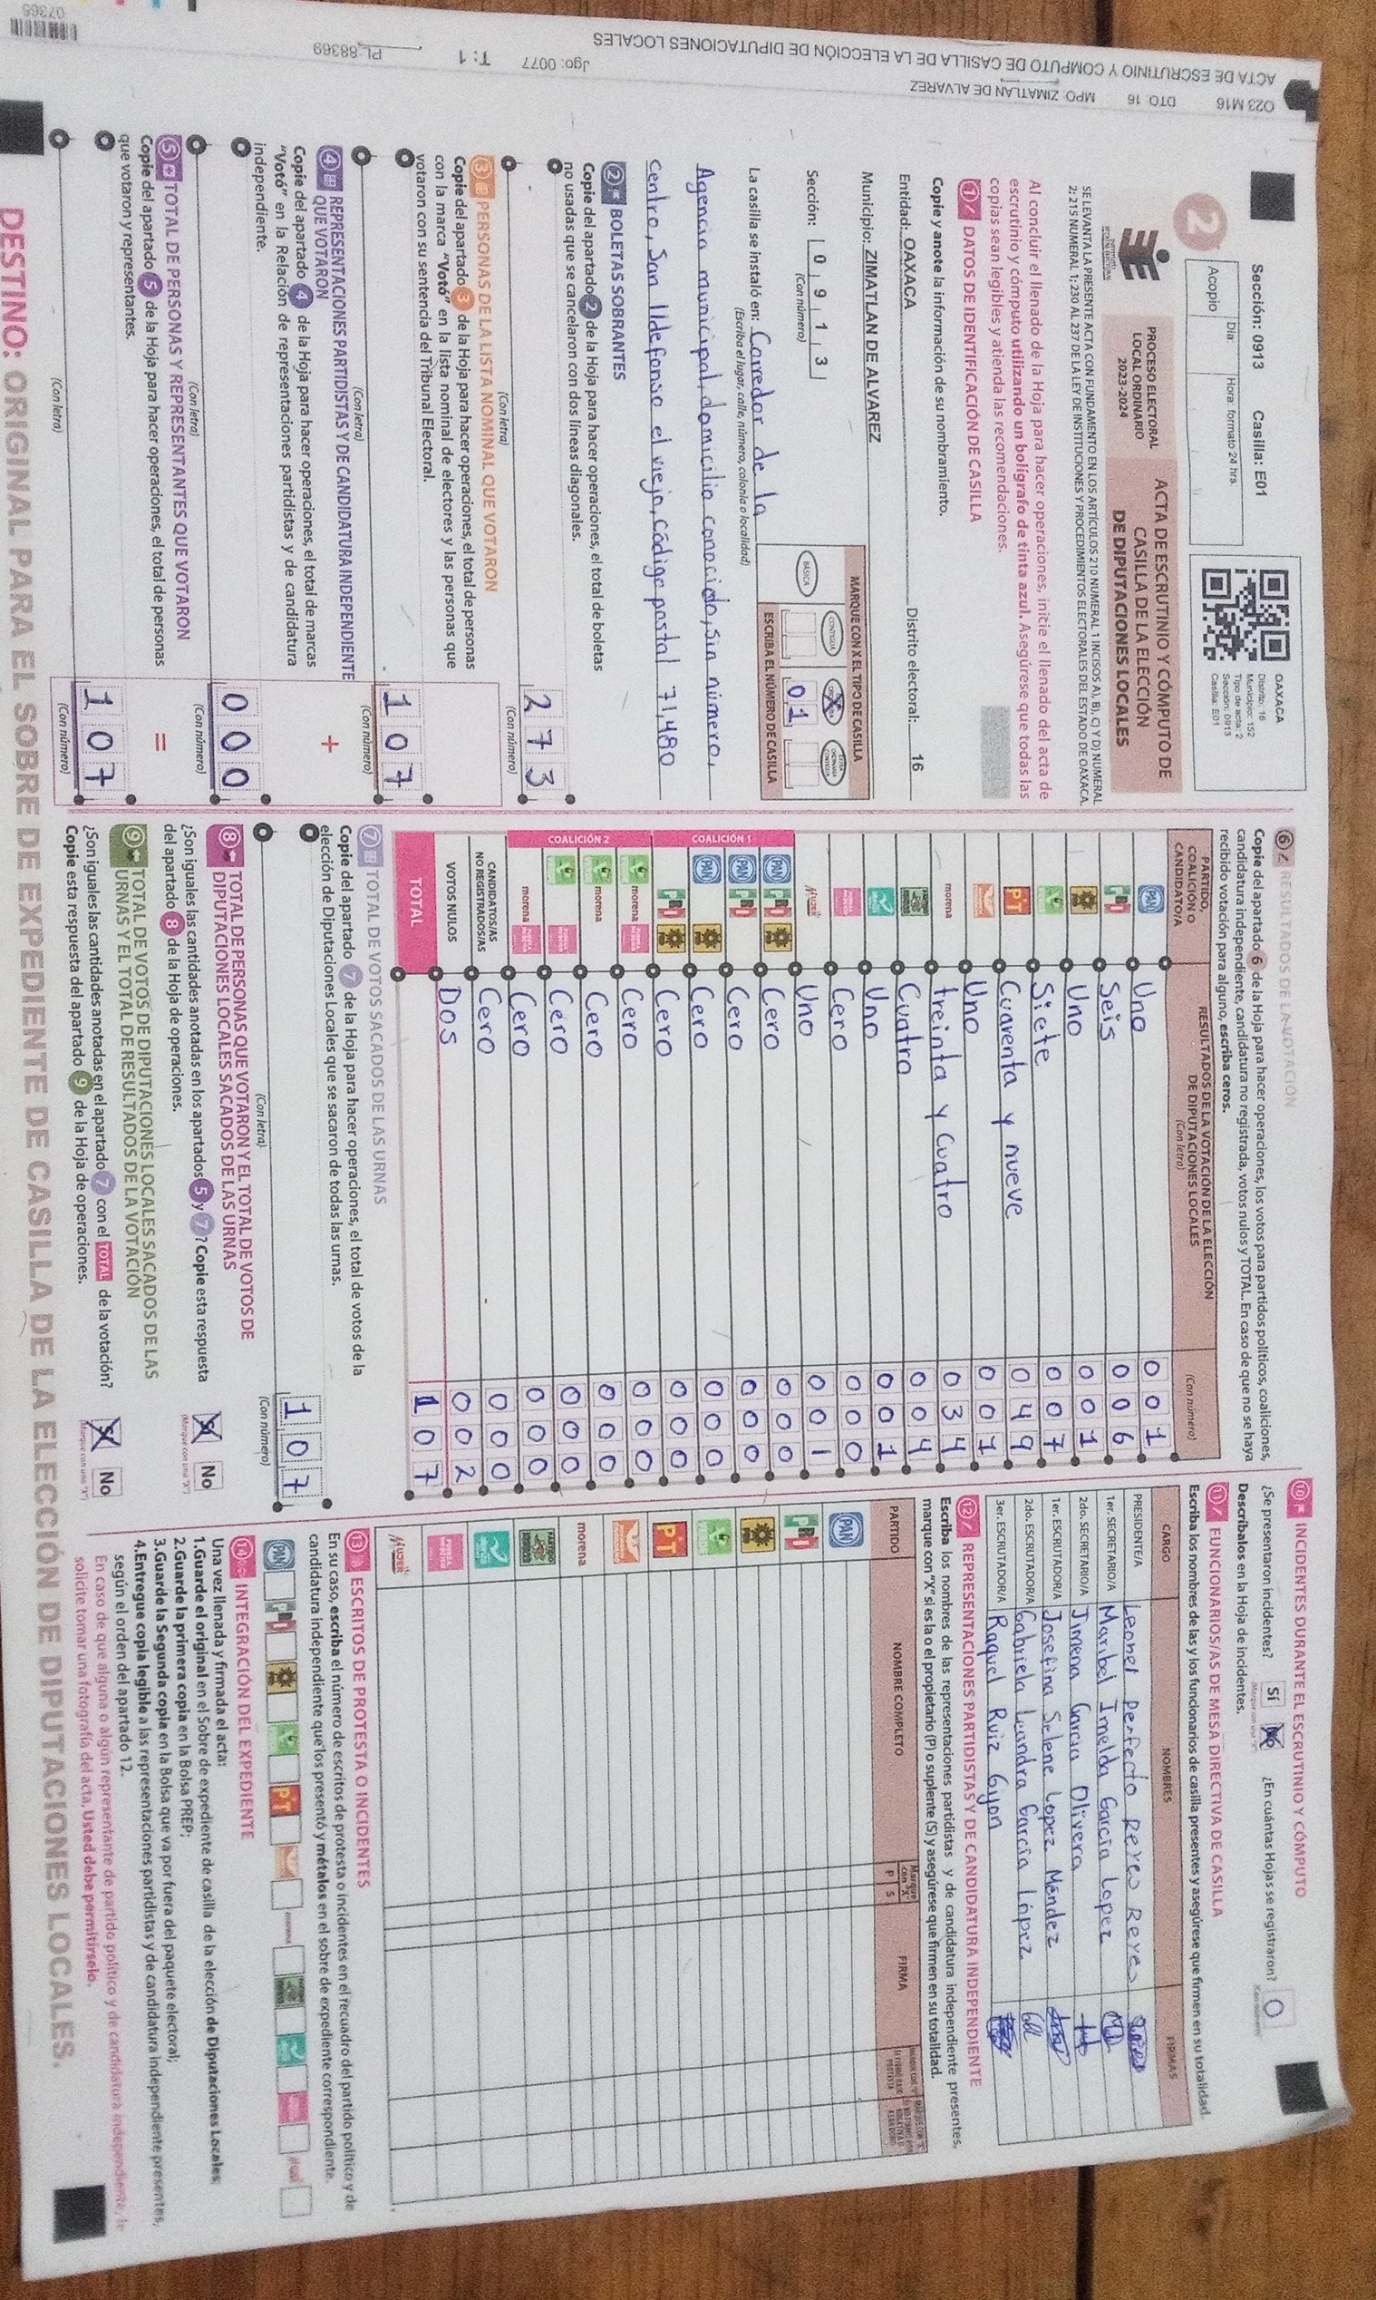 Sección: 0913 Casilla: E01
Día: Hora: formato 24 hrs.
Acopio
2
OAXACA
Distrito: 16
Municipio: 152
Tipo de acta: 2
Sección: 0913
Casilla: E01
PROCESO ELECTORAL
LOCAL ORDINARIO
2023-2024
ACTA DE ESCRUTINIO Y CÓMPUTO DE
CASILLA DE LA ELECCIÓN
DE DIPUTACIONES LOCALES
SE LEVANTA LA PRESENTE ACTA CON FUNDAMENTO EN LOS ARTÍCULOS 210 NUMERAL 1 INCISOS A), B), C) Y D) NUMERAL
2; 215 NUMERAL 1; 230 AL 237 DE LA LEY DE INSTITUCIONES Y PROCEDIMIENTOS ELECTORALES DEL ESTADO DE OAXACA.
Al concluir el llenado de la Hoja para hacer operaciones, inicie el llenado del acta de
escrutinio y cómputo utilizando un bolígrafo de tinta azul. Asegúrese que todas las
copias sean legibles y atienda las recomendaciones.
1 DATOS DE IDENTIFICACIÓN DE CASILLA
Copie y anote la información de su nombramiento.
Entidad: OAXACA Distrito electoral: 16
Municipio: ZIMATLAN DE ALVAREZ
Sección: 0 9 1 3
(Con número)
MARQUE CON X EL TIPO DE CASILLA
BÁSICA CONTIGUA X
01
ESCRIBA EL NÚMERO DE CASILLA
La casilla se instaló en: Corredor de la
(Escriba el lugar, calle, número, colonia o localidad)
Agencia municipal, domicilio conocido, sin número,
centro, San Ildefonso el viejo, código postal 71,480
2 BOLETAS SOBRANTES
Copie del apartado 2 de la Hoja para hacer operaciones, el total de boletas
no usadas que se cancelaron con dos líneas diagonales.
2 7 3
(Con letra) (Con número)
3 PERSONAS DE LA LISTA NOMINAL QUE VOTARON
Copie del apartado 3 de la Hoja para hacer operaciones, el total de personas
con la marca "Votó" en la lista nominal de electores y las personas que
votaron con su sentencia del Tribunal Electoral.
1 0 7
(Con letra) (Con número)
4 REPRESENTACIONES PARTIDISTAS Y DE CANDIDATURA INDEPENDIENTE
QUE VOTARON
+
Copie del apartado 4 de la Hoja para hacer operaciones, el total de marcas
"Votó" en la Relación de representaciones partidistas y de candidatura
independiente.
0 0 0
(Con letra) (Con número)
5 TOTAL DE PERSONAS Y REPRESENTANTES QUE VOTARON
=
Copie del apartado 5 de la Hoja para hacer operaciones, el total de personas
que votaron y representantes.
1 0 7
(Con letra) (Con número)
6 RESULTADOS DE LA VOTACIÓN
Copie del apartado 6 de la Hoja para hacer operaciones, los votos para partidos políticos, coaliciones,
candidatura independiente, candidatura no registrada, votos nulos y TOTAL. En caso de que no se haya
recibido votación para alguno, escriba ceros.
PARTIDO, COALICIÓN O CANDIDATO/A RESULTADOS DE LA VOTACIÓN DE LA ELECCIÓN DE DIPUTACIONES LOCALES (Con letra) (Con número)
PAN Uno 0 0 1
PRI Seis 0 0 6
PRD Uno 0 0 1
Siete 0 0 7
PT Cuarenta y nueve 0 4 9
Uno 0 0 1
morena treinta y cuatro 0 3 4
Cuatro 0 0 4
Uno 0 0 1
Cero 0 0 0
MUJER Uno 0 0 1
COALICIÓN 1
PAN PRI PRD Cero 0 0 0
PAN PRI Cero 0 0 0
PAN PRD Cero 0 0 0
PRI PRD Cero 0 0 0
COALICIÓN 2
morena Cero 0 0 0
morena Cero 0 0 0
Cero 0 0 0
morena Cero 0 0 0
CANDIDATOS/AS NO REGISTRADOS/AS Cero 0 0 0
VOTOS NULOS Dos 0 0 2
TOTAL 1 0 7
7 TOTAL DE VOTOS SACADOS DE LAS URNAS
Copie del apartado 7 de la Hoja para hacer operaciones, el total de votos de la
elección de Diputaciones Locales que se sacaron de todas las urnas.
1 0 7
(Con letra) (Con número)
8 TOTAL DE PERSONAS QUE VOTARON Y EL TOTAL DE VOTOS DE
DIPUTACIONES LOCALES SACADOS DE LAS URNAS
¿Son iguales las cantidades anotadas en los apartados 5 y 7? Copie esta respuesta
del apartado 8 de la Hoja de operaciones.
Sí No
(Marque con una "X")
9 TOTAL DE VOTOS DE DIPUTACIONES LOCALES SACADOS DE LAS
URNAS Y EL TOTAL DE RESULTADOS DE LA VOTACIÓN
¿Son iguales las cantidades anotadas en el apartado 7 con el TOTAL de la votación?
Copie esta respuesta del apartado 9 de la Hoja de operaciones.
Sí No
(Marque con una "X")
10 INCIDENTES DURANTE EL ESCRUTINIO Y CÓMPUTO
¿Se presentaron incidentes? Sí No ¿En cuántas Hojas se registraron? 0
Descríbalos en la Hoja de incidentes.
11 FUNCIONARIOS/AS DE MESA DIRECTIVA DE CASILLA
Escriba los nombres de las y los funcionarios de casilla presentes y asegúrese que firmen en su totalidad.
CARGO NOMBRES FIRMAS
PRESIDENTE/A Leonel Perfecto Reyes Reyes
1er. SECRETARIO/A Maribel Imelda García Lopez
2do. SECRETARIO/A Jimena Garcia Olivera
1er. ESCRUTADOR/A Josefina Selene Lopez Méndez
2do. ESCRUTADOR/A Gabriela Leandra García López
3er. ESCRUTADOR/A Raquel Ruiz Gijon
12 REPRESENTACIONES PARTIDISTAS Y DE CANDIDATURA INDEPENDIENTE
Escriba los nombres de las representaciones partidistas y de candidatura independiente presentes,
marque con "X" si es la o el propietario (P) o suplente (S) y asegúrese que firmen en su totalidad.
PARTIDO NOMBRE COMPLETO Marque con "X" P S FIRMA
PAN
PRI
PRD
PT
morena
MUJER
13 ESCRITOS DE PROTESTA O INCIDENTES
En su caso, escriba el número de escritos de protesta o incidentes en el recuadro del partido político y de
candidatura independiente que los presentó y métalos en el sobre de expediente correspondiente.
PAN PRI PRD PT
14 INTEGRACIÓN DEL EXPEDIENTE
Una vez llenada y firmada el acta:
1.Guarde el original en el Sobre de expediente de casilla de la elección de Diputaciones Locales;
2.Guarde la primera copia en la Bolsa PREP;
3.Guarde la Segunda copia en la Bolsa que va por fuera del paquete electoral;
4.Entregue copia legible a las representaciones partidistas y de candidatura independiente presentes,
según el orden del apartado 12.
En caso de que alguna o algún representante de partido político y de candidatura independiente, le
solicite tomar una fotografía del acta, Usted debe permitírselo.
DESTINO: ORIGINAL PARA EL SOBRE DE EXPEDIENTE DE CASILLA DE LA ELECCIÓN DE DIPUTACIONES LOCALES.
ACTA DE ESCRUTINIO Y COMPUTO DE CASILLA DE LA ELECCIÓN DE DIPUTACIONES LOCALES
O23 M16 DTO. 16 MPO. ZIMATLAN DE ALVAREZ
Jgo: 0077 T: 1 PL: 88369
07365